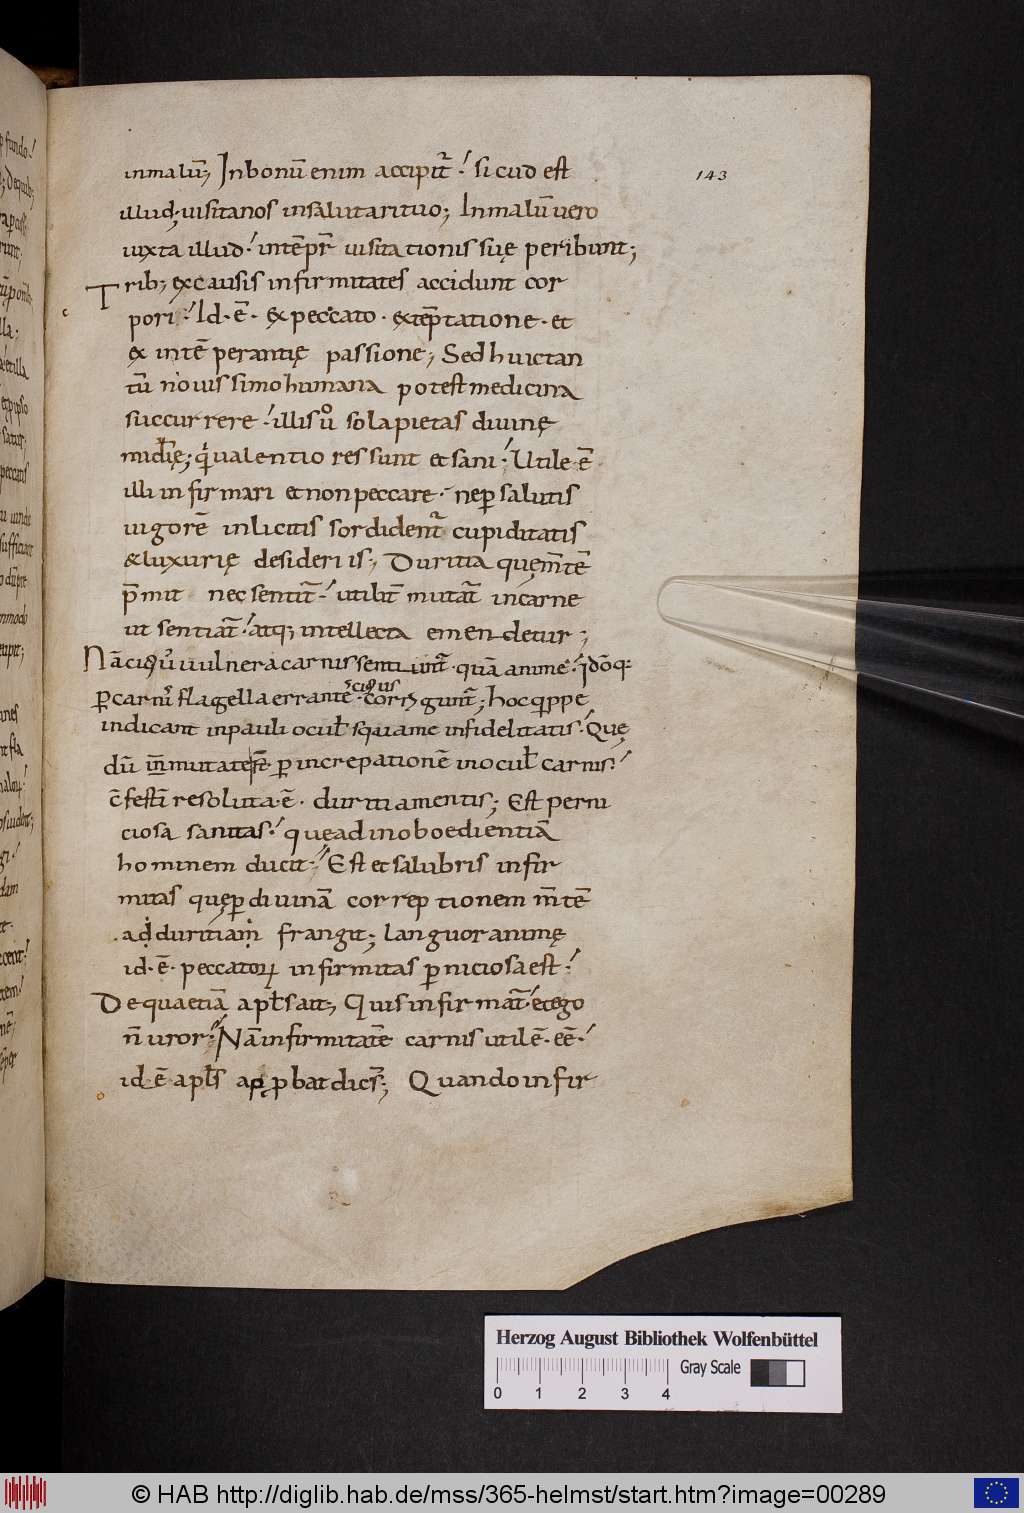 143
inmalū; Inbonū enim accipit͛ : sicud est
illud; uisitanos insalutarituo; Inmalū uero
iuxta illud : intēpr̄ uisitationis suę peribunt;
Trib; excausis infirmitates accidunt cor
pori : Id · ē · ex peccato · extēptatione · et
ex intēperantię passione; Sed huictan
tū nouissimo humana potest medicina
succurrere : illis ů sola pietas diuinę
mīdię; qͥ ualentiores sunt et sani : Utile · ē ·
illi infirmari et non peccare · ne ꝑ salutis
uigorē inlicitis sordident͛ cupiditatis
& luxurię desideriis; Duritia quę m̄tē
p̄mit nec sentit͛ : utilit͛ mutat͛ in carne
ut sentiat͛ : atq; intellecta emendetur;
Nā citiꝰ uulnera carnis sentiunt͛ · quā animę : idōq:
ꝑ carnis flagella errantes citius corriguntur; hoc qippe
indicant in pauli ocul̄ squame infidelitatis · Quę
dū īmutate sē ꝑ increpationē in ocul̄ carnis :
c̄festī resoluta · ē · duritia mentis; Est perni
ciosa sanitas : que ad inoboedientiā
hominem ducit : Est et salubris infir
mitas quę ꝑ diuinā correptionem m̄tē
ad duritiam frangit; languor animę
id · ē · peccatoꝝ infirmitas ꝑniciosa est :
De qua etiā apl̄s ait; Quis infirmat͛ · et ego
n̄ uror : Nā infirmitatē carnis utilē · eē ·
id ē apl̄s ap ꝓbat dicēs; Quando infir
Herzog August Bibliothek Wolfenbüttel
Gray Scale
0 1 2 3 4
© HAB http://diglib.hab.de/mss/365-helmst/start.htm?image=00289